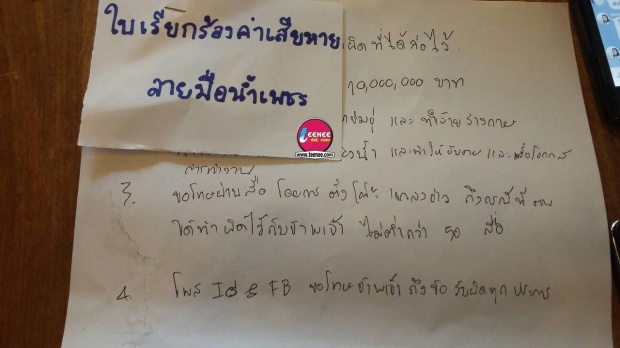 ใบเรียกร้องค่าเสียหาย
ลายมือน้ำเพชร
ผิดที่ได้ก่อไว้
10,000,000 บาท
และ ทำร้ายร่างกาย
และทำให้อับอาย และเสื่อมโอกาส
teenee
dot. com
www.teenee.com
3. ขอโทษผ่านสื่อ โดยการ ตั้งโต๊ะ แถลงข่าว ถึงกรณีที่ตน
ได้ทำผิดไว้กับข้าพเจ้า ไม่ต่ำกว่า 50 สื่อ
4. โพส FB ขอโทษข้าพเจ้า ถึงข้อ รับผิดทุก ประการ